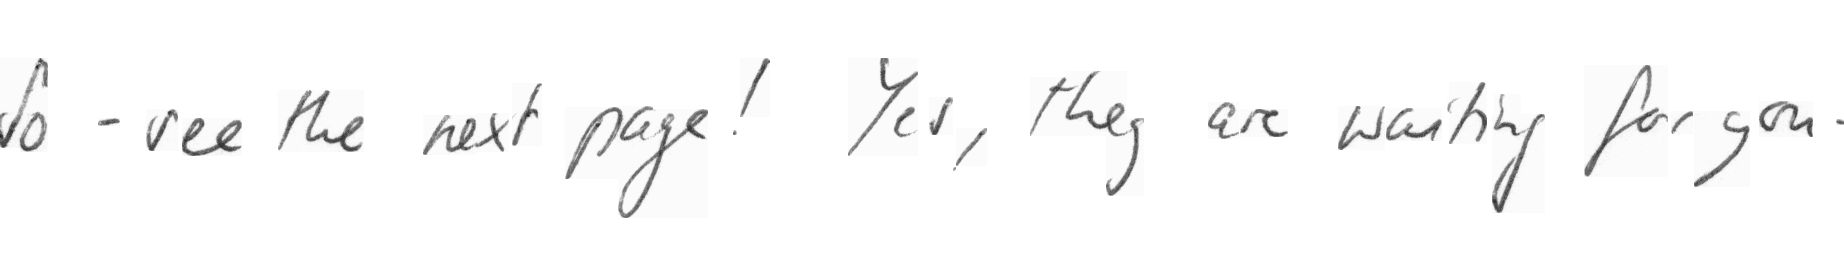 So - see the next page! Yes, they are waiting for you.